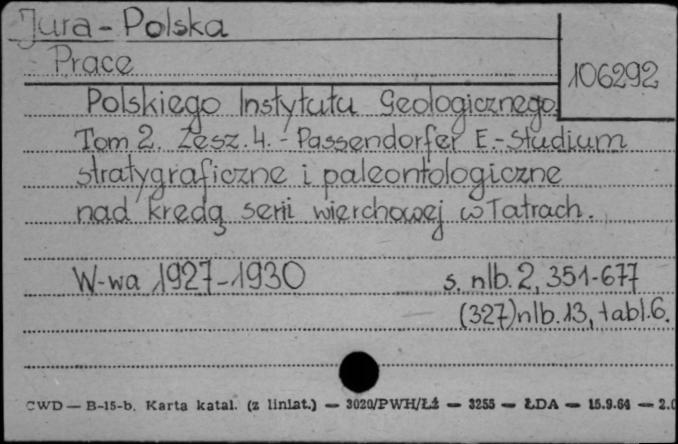 Jura - Polska
Prace
106292
Polskiego Instytutu Geologicznego.
Tom 2. Zesz. 4. - Passendorfer E. - Studium
stratygraficzne i paleontologiczne
nad kredą serii wierchowej w Tatrach.
W-wa 1927-1930 s. nlb. 2, 351-677
(327) nlb. 13, tabl. 6.
CWD — B-15-b. Karta katal. (z liniat.) — 3020/PWH/Łż — 3255 — ŁDA — 15.9.64 — 2.0